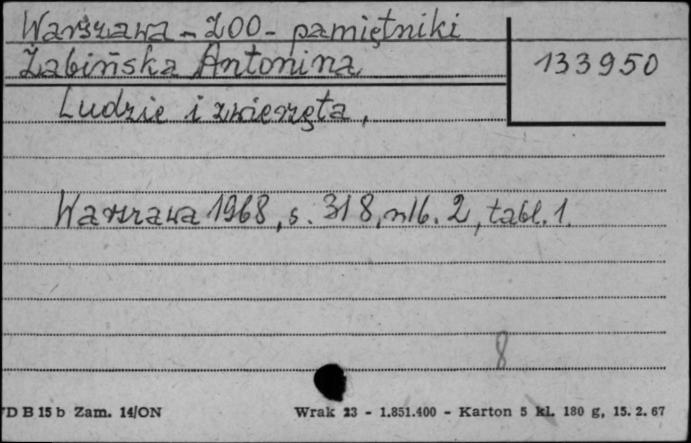 Warszawa - ZOO - pamiętniki
Żabińska Antonina
133950
Ludzie i zwierzęta,
Warszawa 1968, s. 318, nlb. 2, tabl. 1.
8
D B 15 b Zam. 14/ON
Wrak 23 - 1.851.400 - Karton 5 kl. 180 g, 15. 2. 67